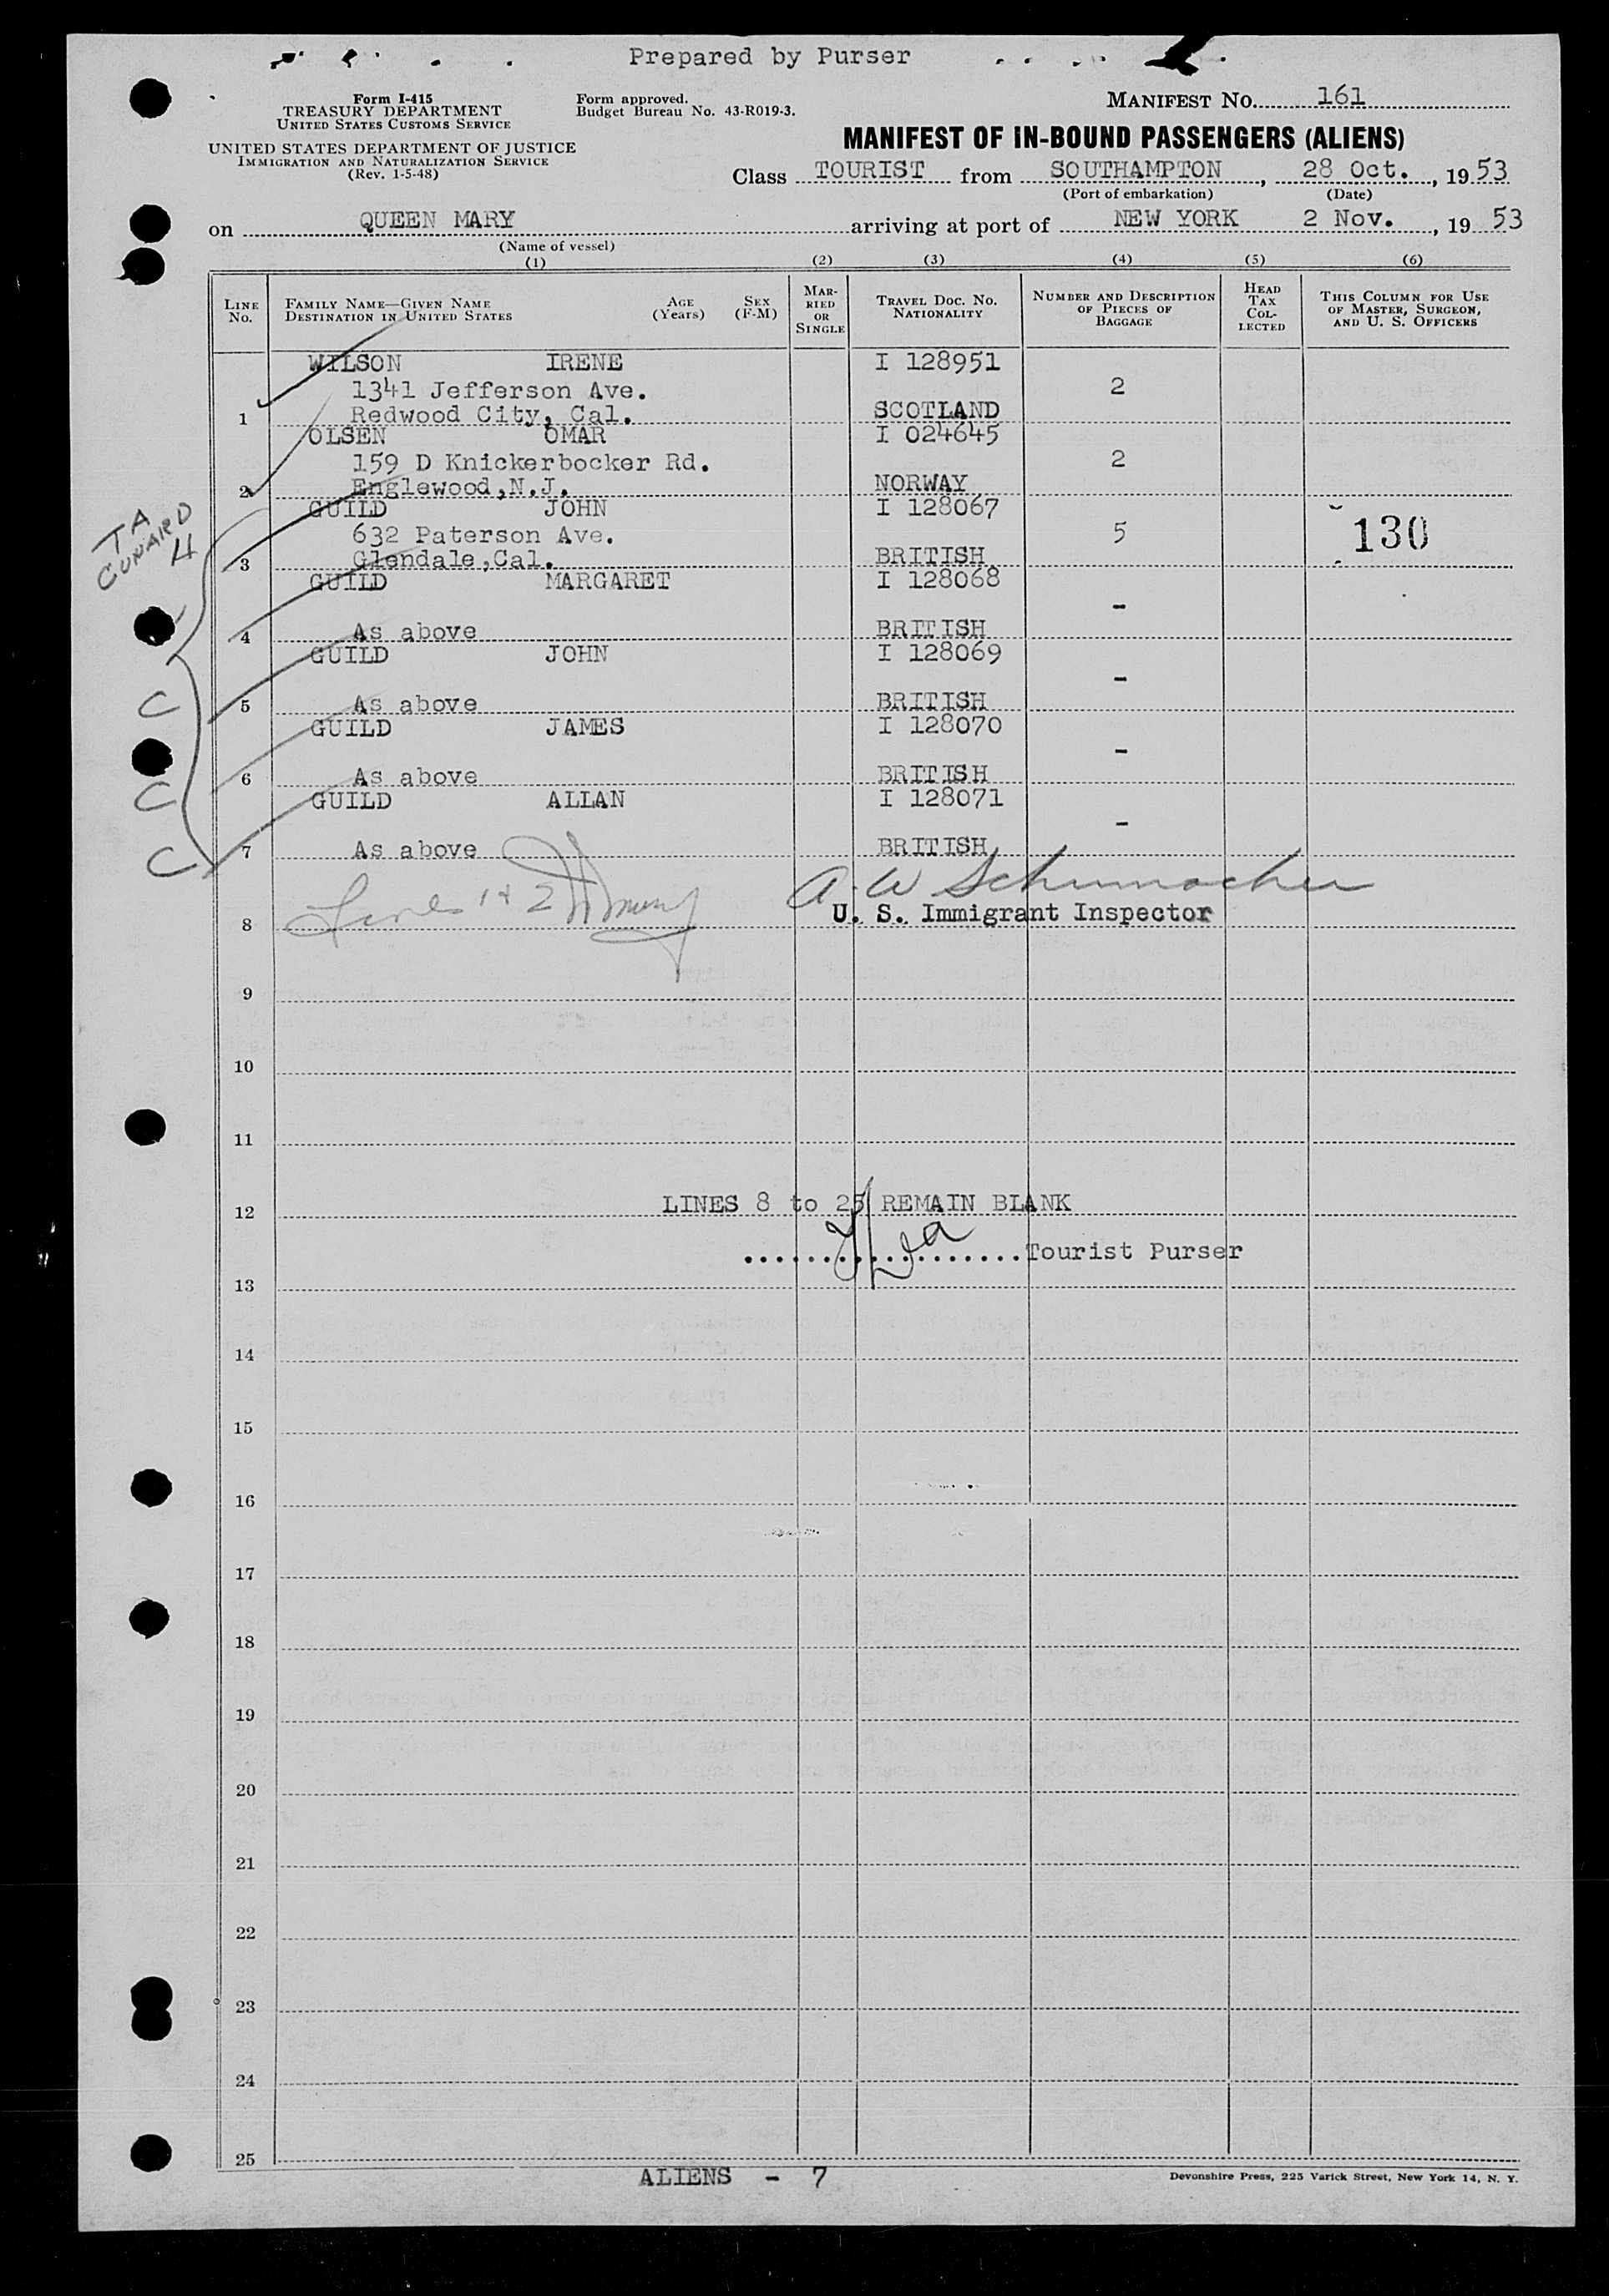 Prepared by Purser
Form I-415
TREASURY DEPARTMENT
UNITED STATES CUSTOMS SERVICE
UNITED STATES DEPARTMENT OF JUSTICE
IMMIGRATION AND NATURALIZATION SERVICE
(Rev. 1-5-48)
Form approved.
Budget Bureau No. 43-R019-3.
MANIFEST NO. 161
MANIFEST OF IN-BOUND PASSENGERS (ALIENS)
Class TOURIST from SOUTHAMPTON, 28 Oct., 1953
(Port of embarkation) (Date)
on QUEEN MARY arriving at port of NEW YORK 2 Nov., 19 53
(Name of vessel)
(1) (2) (3) (4) (5) (6)
LINE NO.
FAMILY NAME—GIVEN NAME
DESTINATION IN UNITED STATES
AGE (Years)
SEX (F-M)
MARRIED OR SINGLE
TRAVEL DOC. NO. NATIONALITY
NUMBER AND DESCRIPTION OF PIECES OF BAGGAGE
HEAD TAX COLLECTED
THIS COLUMN FOR USE OF MASTER, SURGEON, AND U. S. OFFICERS
WILSON IRENE I 128951
1341 Jefferson Ave. 2
1 Redwood City, Cal. SCOTLAND
OLSEN OMAR I 024645
159 D Knickerbocker Rd. 2
2 Englewood,N.J. NORWAY
GUILD JOHN I 128067
632 Paterson Ave. 5 130
3 Glendale,Cal. BRITISH
TA
CUNARD
4
GUILD MARGARET I 128068
-
4 As above BRITISH
GUILD JOHN I 128069
-
C 5 As above BRITISH
GUILD JAMES I 128070
-
C 6 As above BRITISH
GUILD ALLAN I 128071
-
C 7 As above BRITISH
A. W Schumacher
Lines 1 & 2
8 U. S. Immigrant Inspector
9
10
11
12 LINES 8 to 25 REMAIN BLANK
Tourist Purser
13
14
15
16
17
18
19
20
21
22
23
24
25
ALIENS - 7
Devonshire Press, 225 Varick Street, New York 14, N. Y.